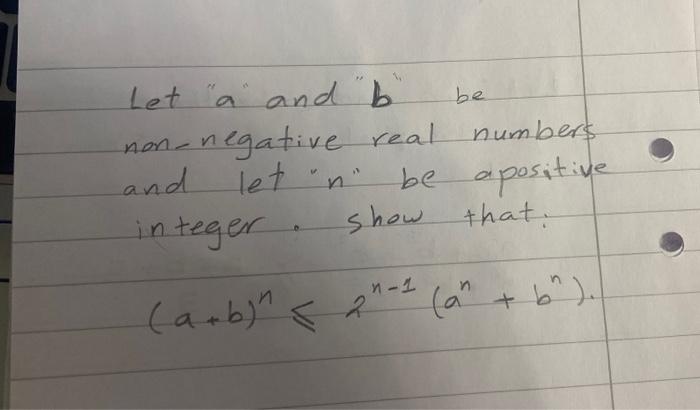 Let "a" and "b" be
non-negative real numbers
and let "n" be a positive
integer. show that:
(a+b)ⁿ ⩽ 2ⁿ⁻¹ (aⁿ + bⁿ).